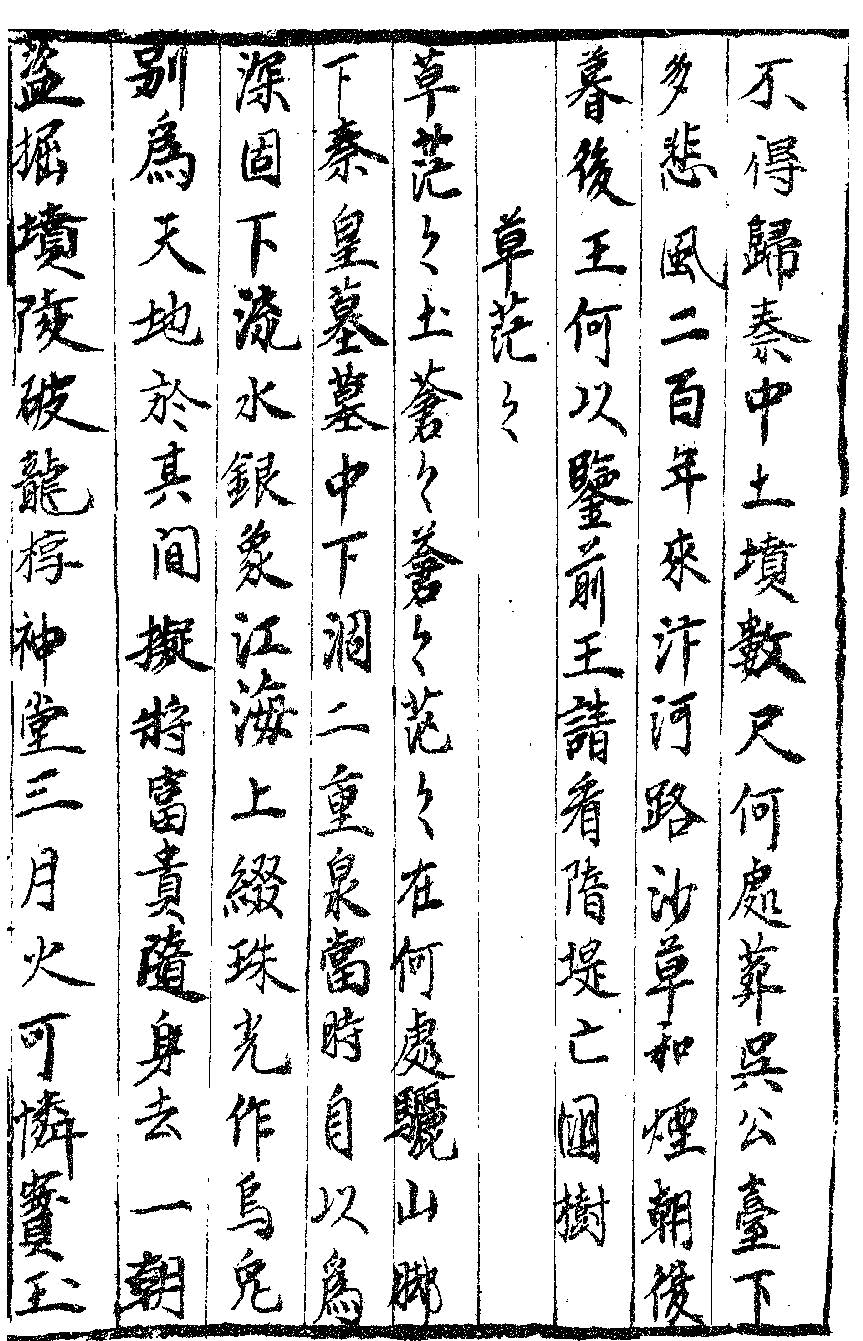 不得歸秦中土墳數尺何處葬吳公臺下
多悲風二百年來汴河路沙草和煙朝復
暮後王何以鑒前王請看隋堤亡國樹
草茫々
草茫々土蒼々蒼々茫々在何處驪山脚
下秦皇墓墓中下涸二重泉當時自以爲
深固下流水銀象江海上綴珠光作烏兔
別爲天地於其間擬將富貴隨身去一朝
盜掘墳陵破龍椁神堂三月火可憐寶玉